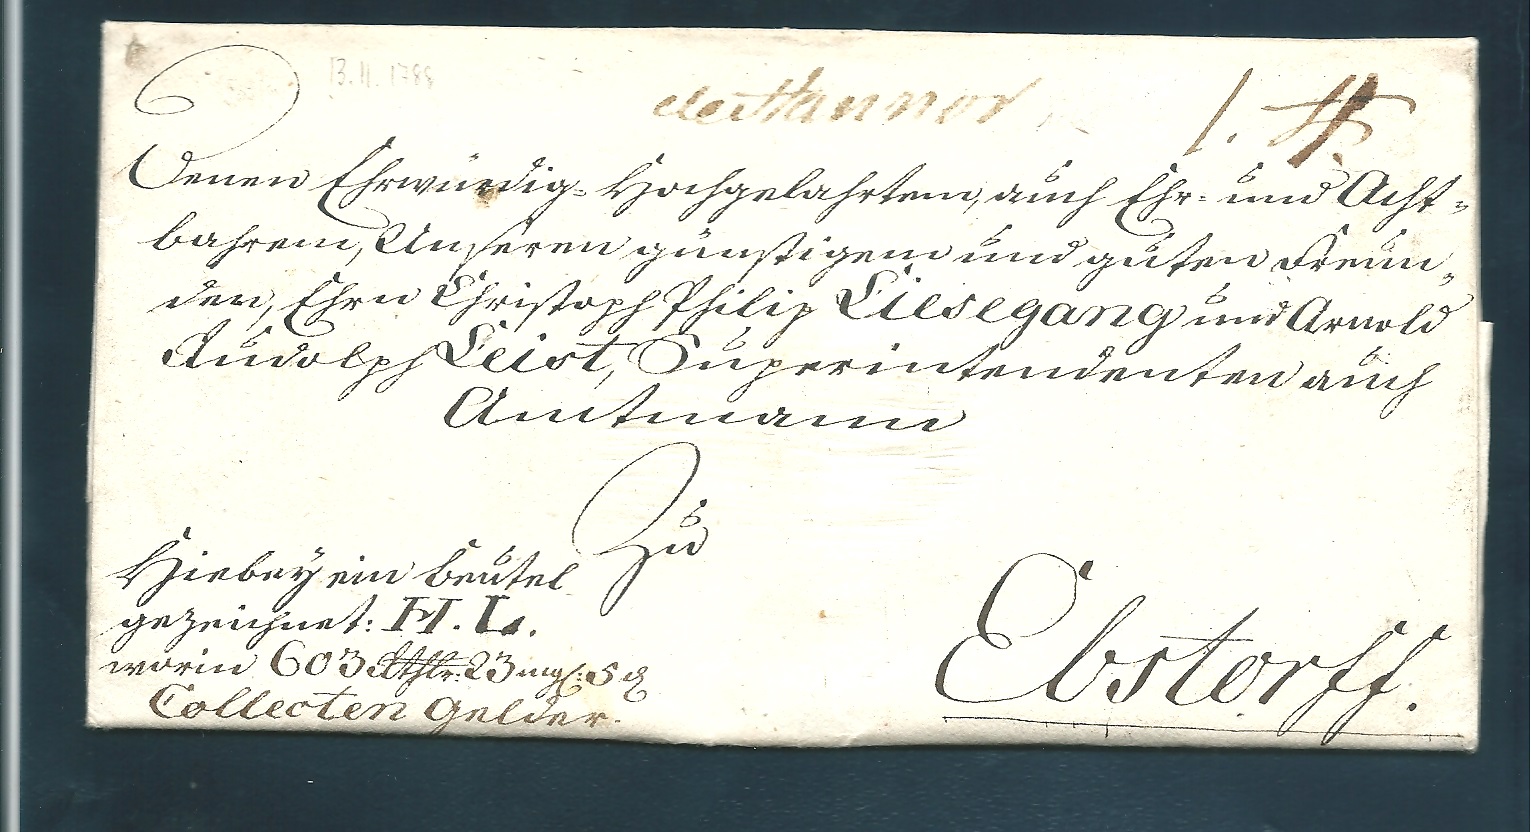 13.11.1788
de Hannov
1. ℔.
Denen Ehrwürdig- Hochgelahrten, auch Ehr- und Acht-
bahren, Unseren günstigen und guten Freun-
den, Ehrn Christoph Philip Liesegang und Arnold
Rudolph Leist, Superintendenten auch
Amtmann
Zu
Ebstorff.
Hiebey ein Beutel
gezeichnet: H. L.
worin 603 Rthlr: 23 mgr: 5 d
Collecten Gelder.